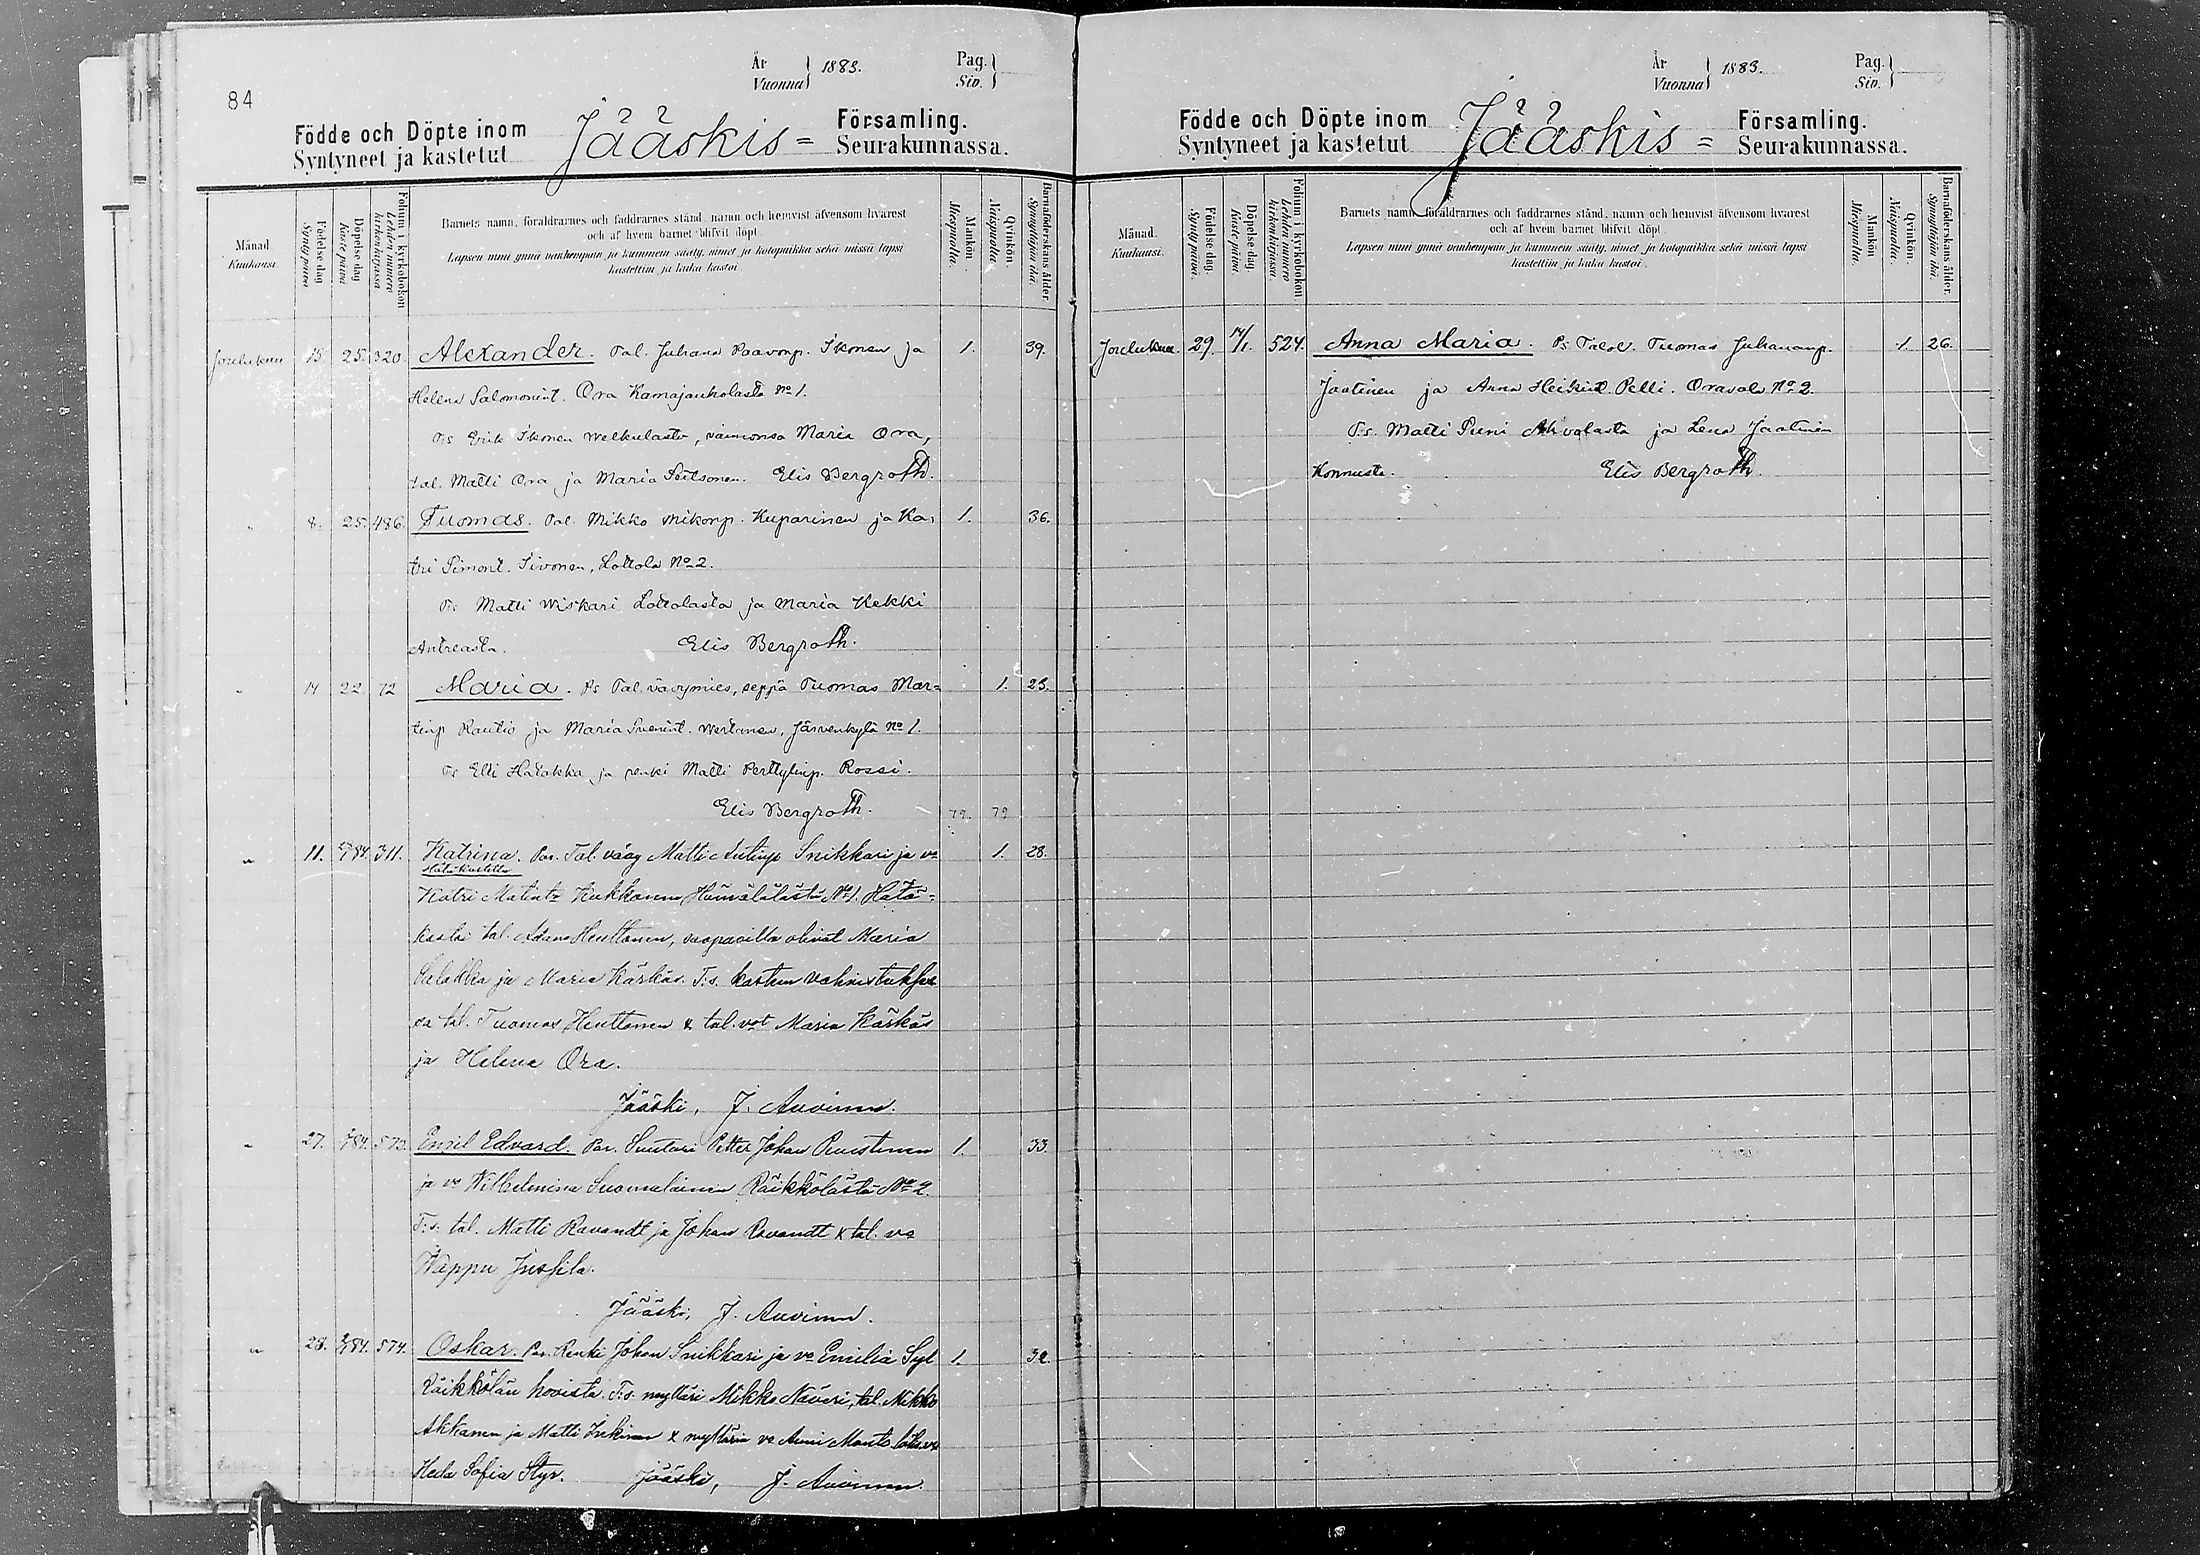 84
År
Vuonna } 1883.
Pag.
Siv. }
Födde och Döpte inom
Syntyneet ja kastetut
Jääskis =
Församling.
Seurakunnassa.
Månad.
Kuukausi.
Födelse dag
Synty päivä
Döpelse dag
Kaste päivä
Folium i kyrkobokon
Lehden numero
kirkonkirjassa
Barnets namn, föräldrarnes och faddrarnes stånd, namn och hemvist äfvensom hvarest
och af hvem barnet blifvit döpt.
Lapsen nimi ynnä vanhempain ja kummein sääty, nimet ja kotopaikka sekä missä lapsi
kastettiin ja kuka kastoi.
Mankön.
Miespuolia.
Qvinkön.
Naispuolia.
Barnaföderskans ålder.
Synnyttäjän ikä.
Joulukuu 15. 25. 320. Alexander. Tal. Juhana Paavonp. Ikonen ja 1. 39.
Helena Salomonint. Ora Kamajauholasta No 1.
Ts. Erik Ikonen Welkulasta, vaimonsa Maria Ora,
tal. Matti Ora ja Maria Elis Bergroth.
" 8. 25. 486. Tuomas. Tal. Mikko Mikonp. Kuparinen ja Ka= 1. 36.
tri Simont. Sivonen, Lottola No 2.
Ts. Matti Wiskari Lottolasta ja Maria Kekki
Antreasta. Elis Bergroth.
" 14 22. 72 Maria. Ps Tal. vävymies, seppä Tuomas Mar= 1. 23.
tinp Rautio ja Maria Järvenkylä No 1.
Ts. Elli Hatakka ja renki Matti Perttylinp. Rossi.
Elis Bergroth. 79. 79
" 11. 311. Katrina. Par. Tal. Matti Snikkari ja vo 1. 28.
Hätäkastettu
Katri Matint. Kukkonen Hämäläläistä No 1. Hätä=
kastoi tal. Adam Henttonen, saapuvilla olivat Maria
ja Maria Kärkäs. T:s. kasteen vahvistukses
sa tal. Tuomas Henttonen & tal. vot Maria Kärkäs
ja Helena Ora.
Jääski, J. Auvinen.
" 27. Emil Edvard. Par. Suutari Petter Johan 1. 33.
ja vo Wilhelmina Suomalainen Räikkölästä No 2.
T:s. tal. Matti Ravandt ja Johan Ravandt & tal. vo
Wappu Jussila.
Jääski, J. Auvinen.
" 28. 574. Oskar. Par. Renki Johan Snikkari ja vo Emilia Syl 1. 32.
Räikkölän hovista. T:s. mylläri Mikko Näveri, tal. Mikko
Akkanen ja Matti Inkinen & myllärin vo Anni
Heda Sofia Styr. Jääski, J. Auvinen.
År
Vuonna } 1883.
Pag.
Siv. }
Födde och Döpte inom
Syntyneet ja kastetut
Jääskis =
Församling.
Seurakunnassa.
Månad.
Kuukausi.
Födelse dag.
Synty päivä.
Döpelse dag
Kaste päivä.
Folium i kyrkobokon
Lehden numero
kirkonkirjassa.
Barnets namn, föräldrarnes och faddrarnes stånd, namn och hemvist äfvensom hvarest
och af hvem barnet blifvit döpt.
Lapsen nimi ynnä vanhempain ja kummein sääty, nimet ja kotopaikka sekä missä lapsi
kastettiin ja kuka kastoi.
Mankön
Miespuolia.
Qvinkön.
Naispuolia.
Barnaföderskans ålder.
Synnyttäjän ikä.
Joulukuu. 29. 14/1. 524. Anna Maria. Ps Talol. Tuomas Juhananp. 1. 26.
Jaatinen ja Anna Heikint. Pelli. Oravala No 2.
T.s. Matti Puni Ahvolasta ja Lena Jaatinen
Konnusta. Elis Bergroth.